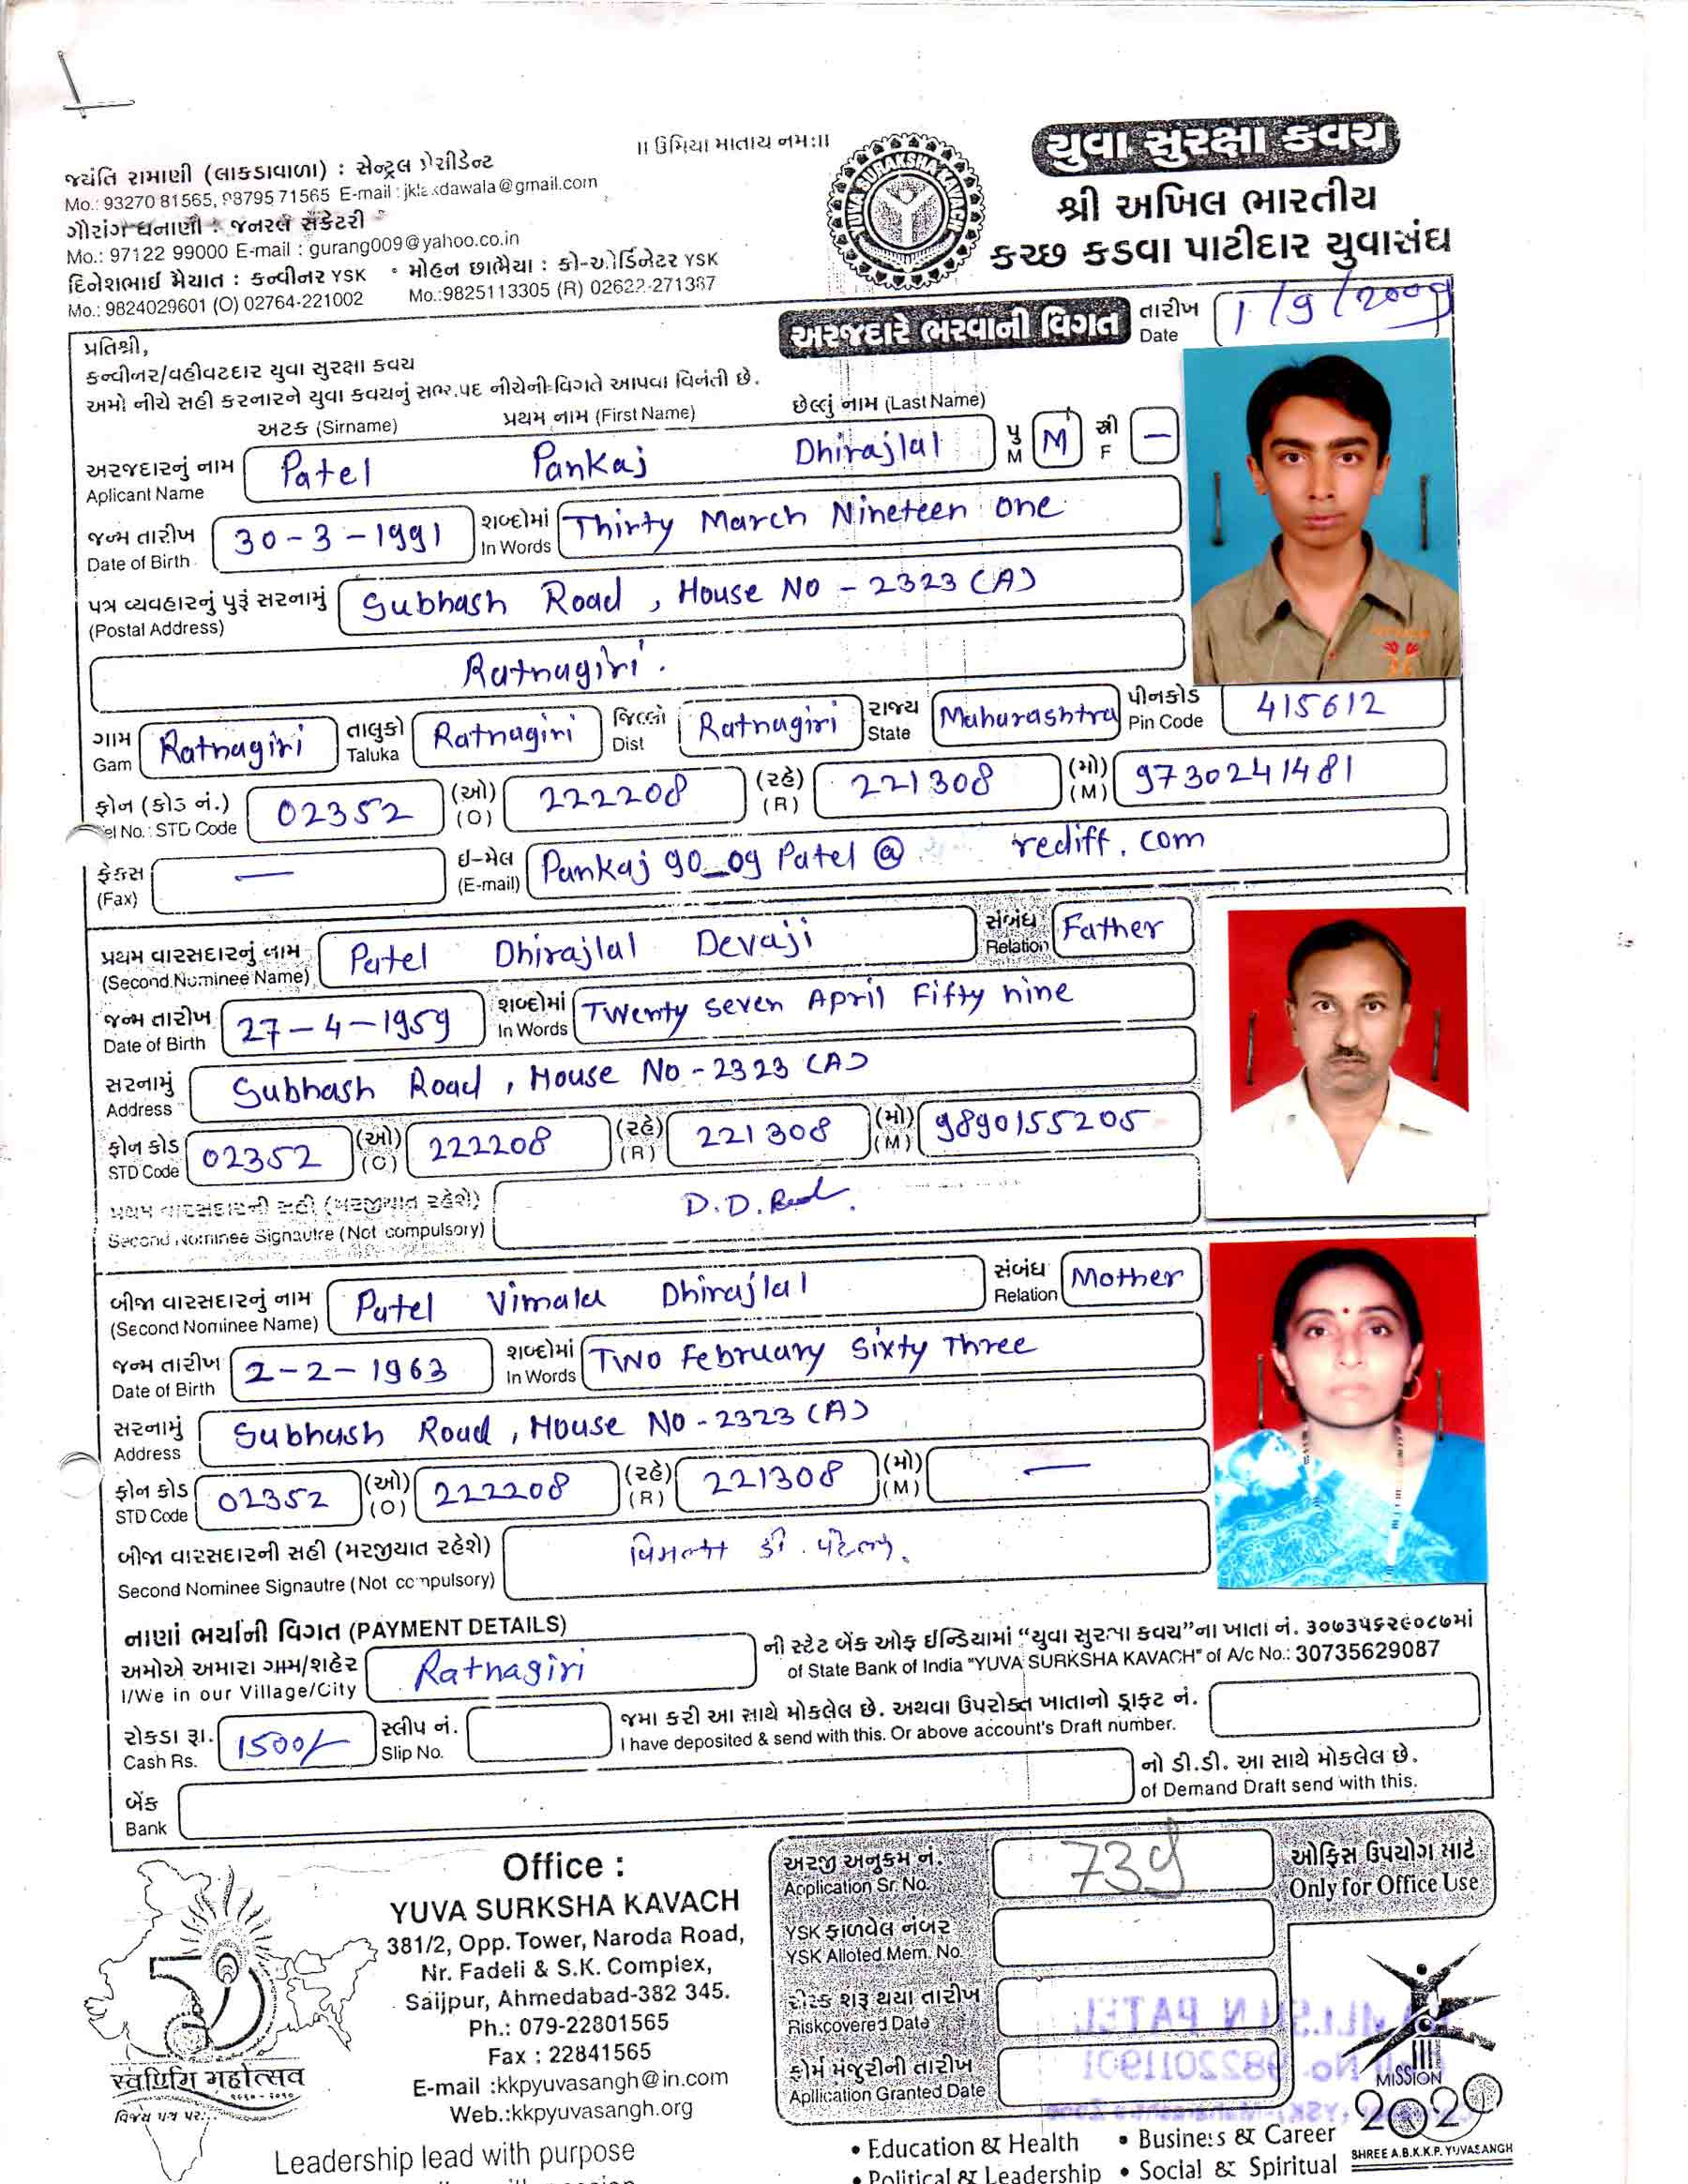 ॥ ઉમિયા માતાય નમઃ॥
જયંતિ રામાણી (લાકડાવાળા) : સેન્ટ્રલ પ્રેસીડેન્ટ
Mo.: 93270 81565, 98795 71565 E-mail : jklakdawala@gmail.com
ગૌરાંગ ધનાણી : જનરલ સેક્રેટરી
Mo.: 97122 99000 E-mail : gurang009@yahoo.co.in
દિનેશભાઈ મૈયાત : કન્વીનર YSK • મોહન છાભૈયા : કો-ઓર્ડિનેટર YSK
Mo.: 9824029601 (O) 02764-221002 Mo.:9825113305 (R) 02622-271387
YUVA SURAKSHA KAVACH
યુવા સુરક્ષા કવચ
શ્રી અખિલ ભારતીય
કચ્છ કડવા પાટીદાર યુવાસંઘ
અરજદારે ભરવાની વિગત
તારીખ Date 1/9/2009
પ્રતિશ્રી,
કન્વીનર/વહીવટદાર યુવા સુરક્ષા કવચ
અમો નીચે સહી કરનારને યુવા કવચનું સભ્ય પદ નીચેની વિગતે આપવા વિનંતી છે.
અટક (Sirname) પ્રથમ નામ (First Name) છેલ્લું નામ (Last Name)
અરજદારનું નામ Aplicant Name Patel Pankaj Dhirajlal પુ M M સ્રી F —
જન્મ તારીખ Date of Birth 30-3-1991 શબ્દોમાં In Words Thirty March Nineteen one
પત્ર વ્યવહારનું પુરૂં સરનામું (Postal Address) Subhash Road, House No - 2323 (A)
Ratnagiri.
ગામ Gam Ratnagiri તાલુકો Taluka Ratnagiri જિલ્લો Dist Ratnagiri રાજ્ય State Maharashtra પીનકોડ Pin Code 415612
ફોન (કોડ નં.) Tel No.: STD Code 02352 (ઓ) (O) 222208 (રહે) (R) 221308 (મો) (M) 9730241481
ફેકસ (Fax) — ઇ-મેલ (E-mail) Pankaj 90_09 Patel @ rediff.com
પ્રથમ વારસદારનું નામ (Second Nominee Name) Patel Dhirajlal Devaji સંબંધ Relation Father
જન્મ તારીખ Date of Birth 27-4-1959 શબ્દોમાં In Words Twenty seven April Fifty nine
સરનામું Address Subhash Road, House No - 2323 (A)
ફોન કોડ STD Code 02352 (ઓ) (O) 222208 (રહે) (R) 221308 (મો) (M) 9890155205
પ્રથમ વારસદારની સહી (મરજીયાત રહેશે)
Second Nominee Signautre (Not compulsory) D.D.
બીજા વારસદારનું નામ (Second Nominee Name) Patel Vimala Dhirajlal સંબંધ Relation Mother
જન્મ તારીખ Date of Birth 2-2-1963 શબ્દોમાં In Words Two February Sixty Three
સરનામું Address Subhash Road, House No - 2323 (A)
ફોન કોડ STD Code 02352 (ઓ) (O) 222208 (રહે) (R) 221308 (મો) (M) —
બીજા વારસદારની સહી (મરજીયાત રહેશે) વિમળા ડી. પટેલ.
Second Nominee Signautre (Not compulsory)
નાણાં ભર્યાની વિગત (PAYMENT DETAILS)
અમોએ અમારા ગામ/શહેર Ratnagiri ની સ્ટેટ બેંક ઓફ ઇન્ડિયામાં "યુવા સુરક્ષા કવચ"ના ખાતા નં. ૩૦૭૩૫૬૨૯૦૮૭માં
I/We in our Village/City of State Bank of India "YUVA SURKSHA KAVACH" of A/c No.: 30735629087
રોકડા રૂા. Cash Rs. 1500/- સ્લીપ નં. Slip No. જમા કરી આ સાથે મોકલેલ છે. અથવા ઉપરોક્ત ખાતાનો ડ્રાફટ નં.
I have deposited & send with this. Or above account's Draft number.
બેંક Bank નો ડી.ડી. આ સાથે મોકલેલ છે.
of Demand Draft send with this.
Office :
YUVA SURKSHA KAVACH
381/2, Opp. Tower, Naroda Road,
Nr. Fadeli & S.K. Complex,
Saijpur, Ahmedabad-382 345.
Ph.: 079-22801565
Fax : 22841565
E-mail :kkpyuvasangh@in.com
Web.:kkpyuvasangh.org
અરજી અનુક્રમ નં. Application Sr. No. 739
ઓફિસ ઉપયોગ માટે
Only for Office Use
YSK ફાળવેલ નંબર
YSK Alloted Mem. No.
રીસ્ક શરૂ થયા તારીખ
Riskcovered Date
ફોર્મ મંજુરીની તારીખ
Apllication Granted Date
स्वर्णिम महोत्सव
MISSION
2020
SHREE A.B.K.K.P. YUVASANGH
Leadership lead with purpose
• Education & Health • Business & Career
• Political & Leadership • Social & Spiritual